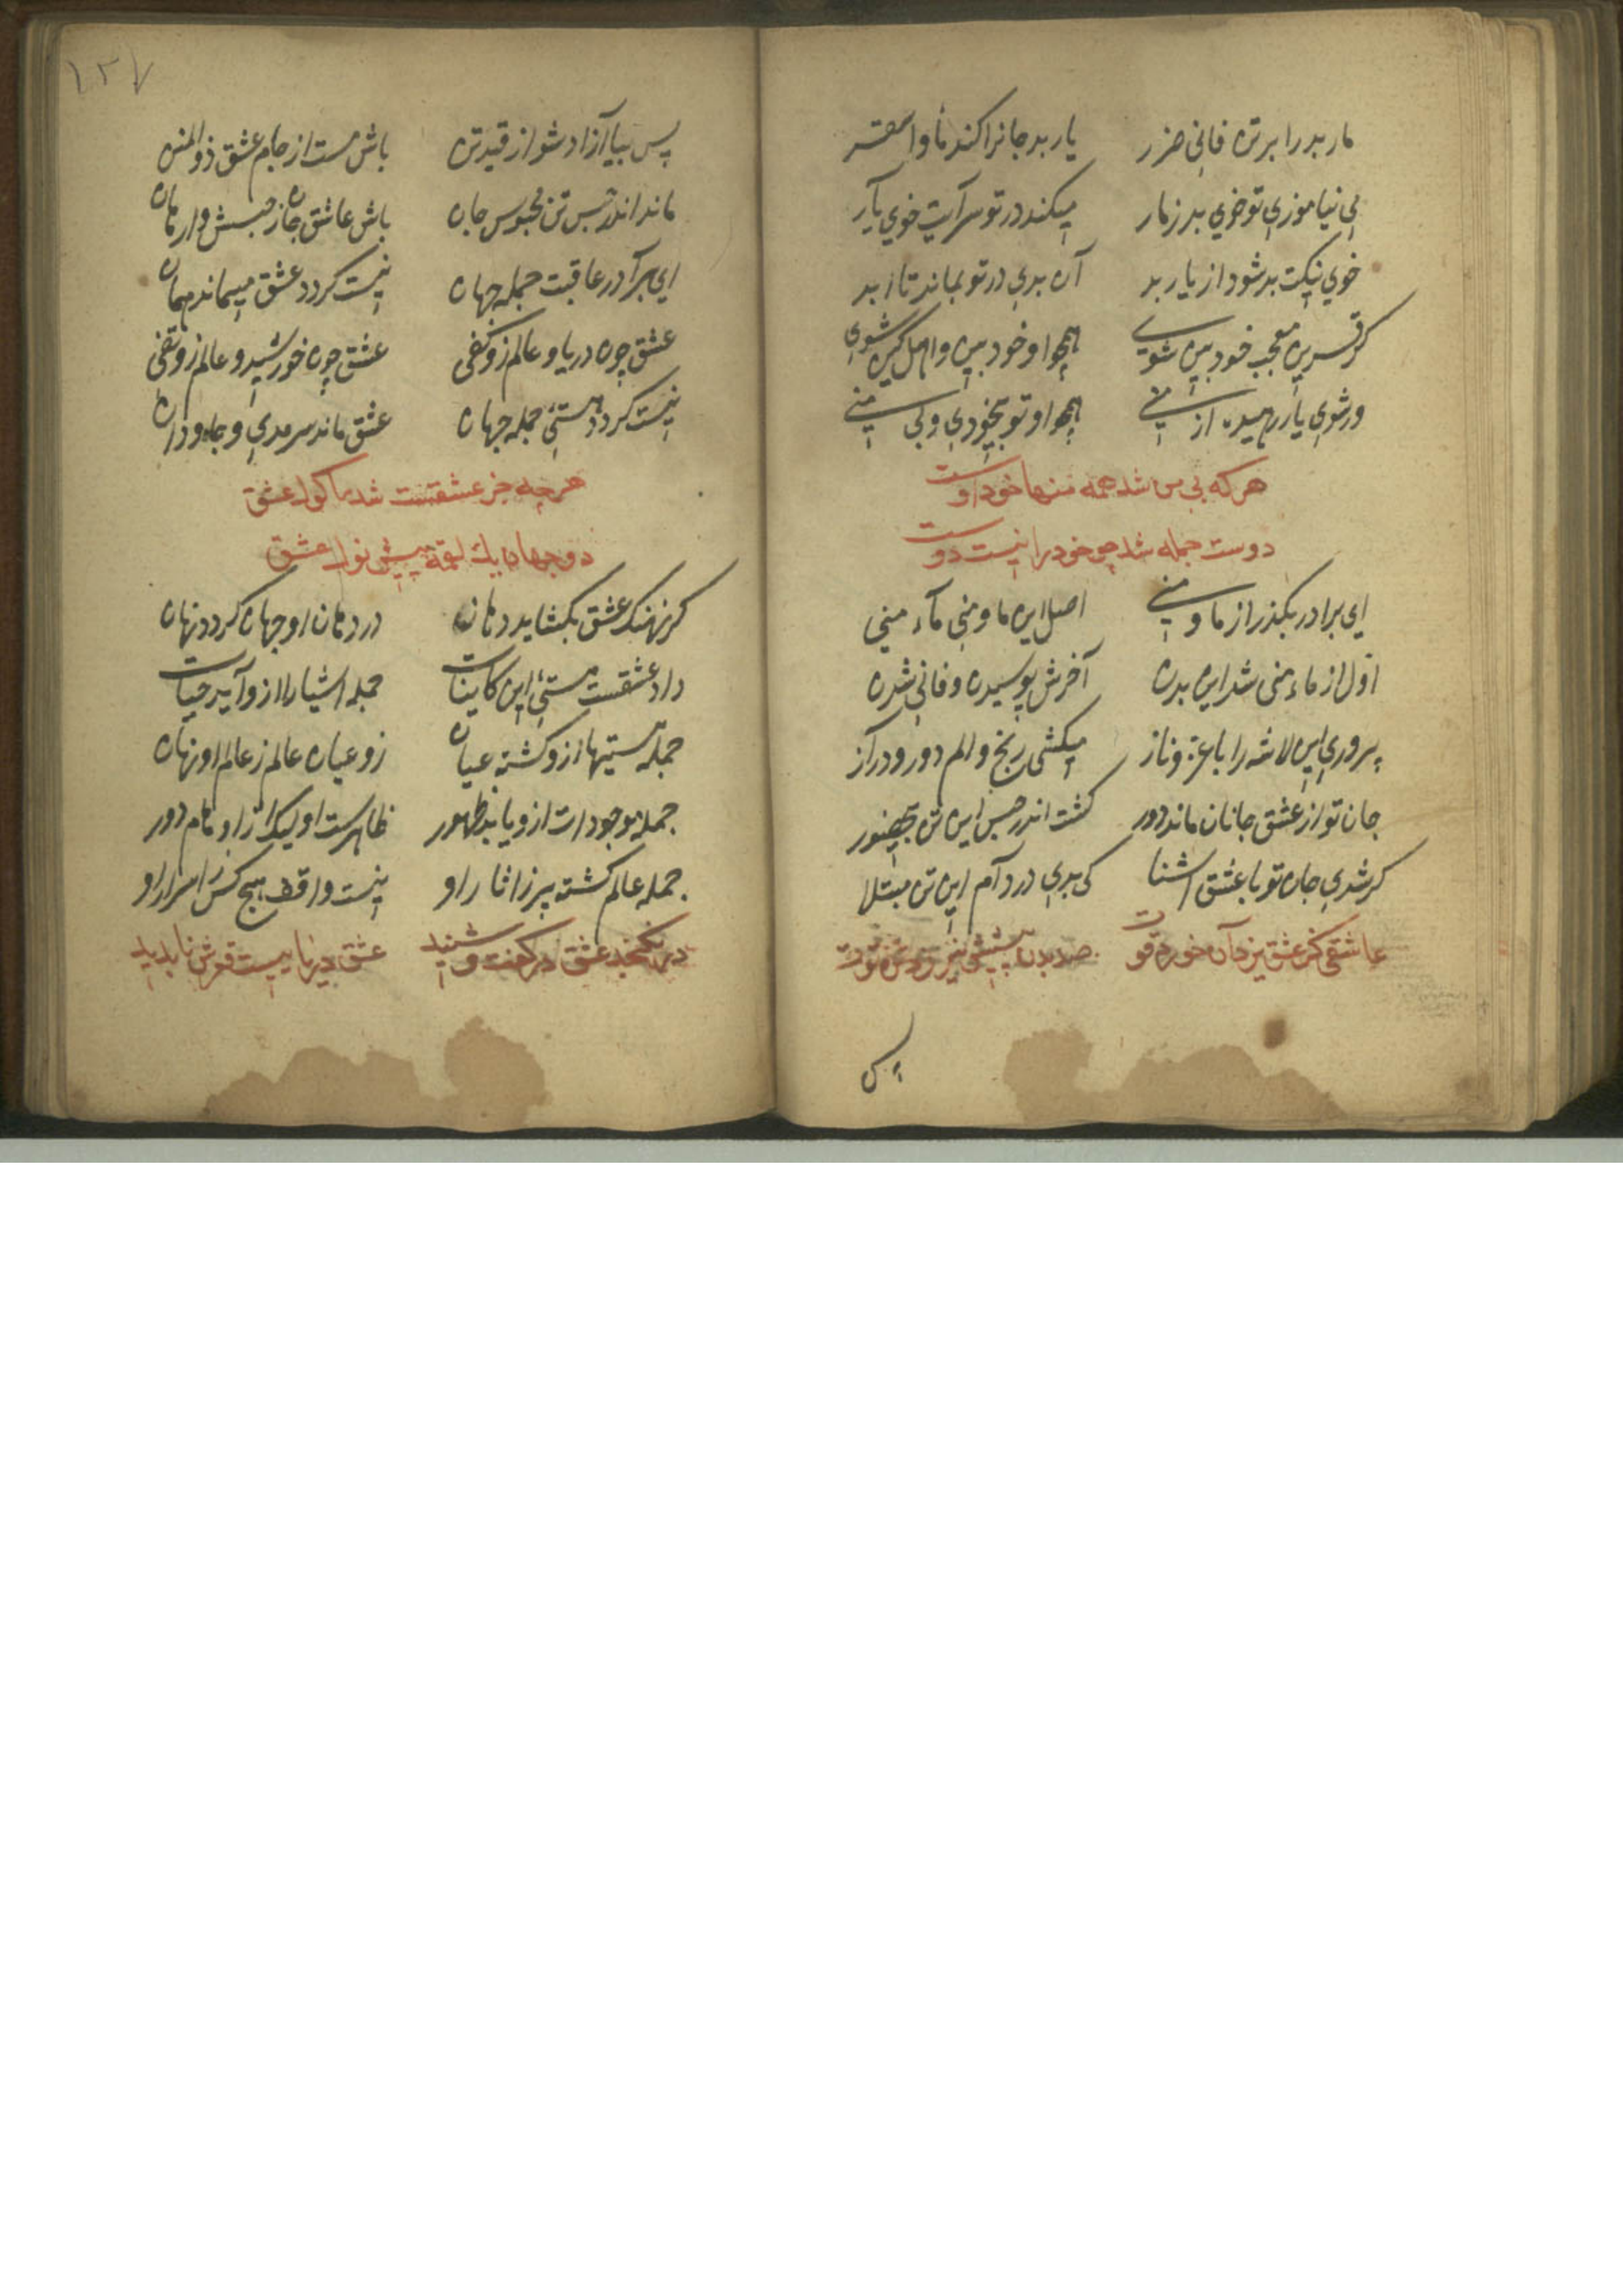 مار بد را بر تن فانی ضرر یار بد جانرا کند مأوا سقر
بی نیاموزی تو خوی بد ز مار میکند در تو سرایت خوی یار
خوی نیکت بد شود از یار بد آن بدی در تو بماند تا ابد
گر قرین معجب خود بین شوی همچو او خود بین و اهل کین شوی
ور شوی یار رهیده از منی همچو او تو بیخودی و بی منی
هر که بی من شد همه منها خود اوست
دوست جمله شد چو خود را نیست دوست
ای برادر بگذر از ما و منی اصل این ما و منی ماء منی
اول از ماء منی شد این بدن آخرش پوسیدن و فانی شدن
پروری این لاشه را با عز و ناز میکشی رنج و الم دور و دراز
جان تو از عشق جانان ماند دور گشت اندر حبس این تن بیحضور
گر شدی جان تو با عشق آشنا کی بدی در دام این تن مبتلا
عاشقی کز عشق یزدان خورد قوت صد بدن پیشش نیرزد تره توت
پس
١٢٧
پس بیا آزاد شو از قید تن باش مست از جام عشق ذو المنن
ماند اندر حبس تن محبوس جان باش عاشق جان ز حبسش وارهان
ای برادر عاقبت جمله جهان نیست گردد عشق میماند همان
عشق چون دریا و عالم زو کفی عشق چون خورشید و عالم زو تفی
نیست گردد هستئ جمله جهان عشق ماند سرمدی و جاودان
هر چه جز عشقست شد ماکول عشق
دو جهان یک لقمه پیش نول عشق
گر نهنگ عشق بگشاید دهان در دهان او جهان گردد نهان
داد عشقست هستئ این کاینات جمله اشیا را ازو آید حیات
جمله هستیها ازو گشته عیان زو عیان عالم ز عالم او نهان
جمله موجودات ازو یابد ظهور ظاهرست او لیک از اوهام دور
جمله عالم گشته پر ز اثار او نیست واقف هیچ کس ز اسرار او
در نگنجد عشق در گفت و شنید عشق دریاییست قعرش ناپدید